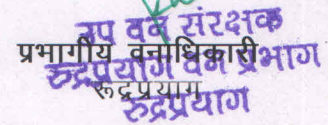 उप वन संरक्षक
प्रभागीय वनाधिकारी
रुद्रप्रयाग वन प्रभाग
रूद्रप्रयाग
रुद्रप्रयाग